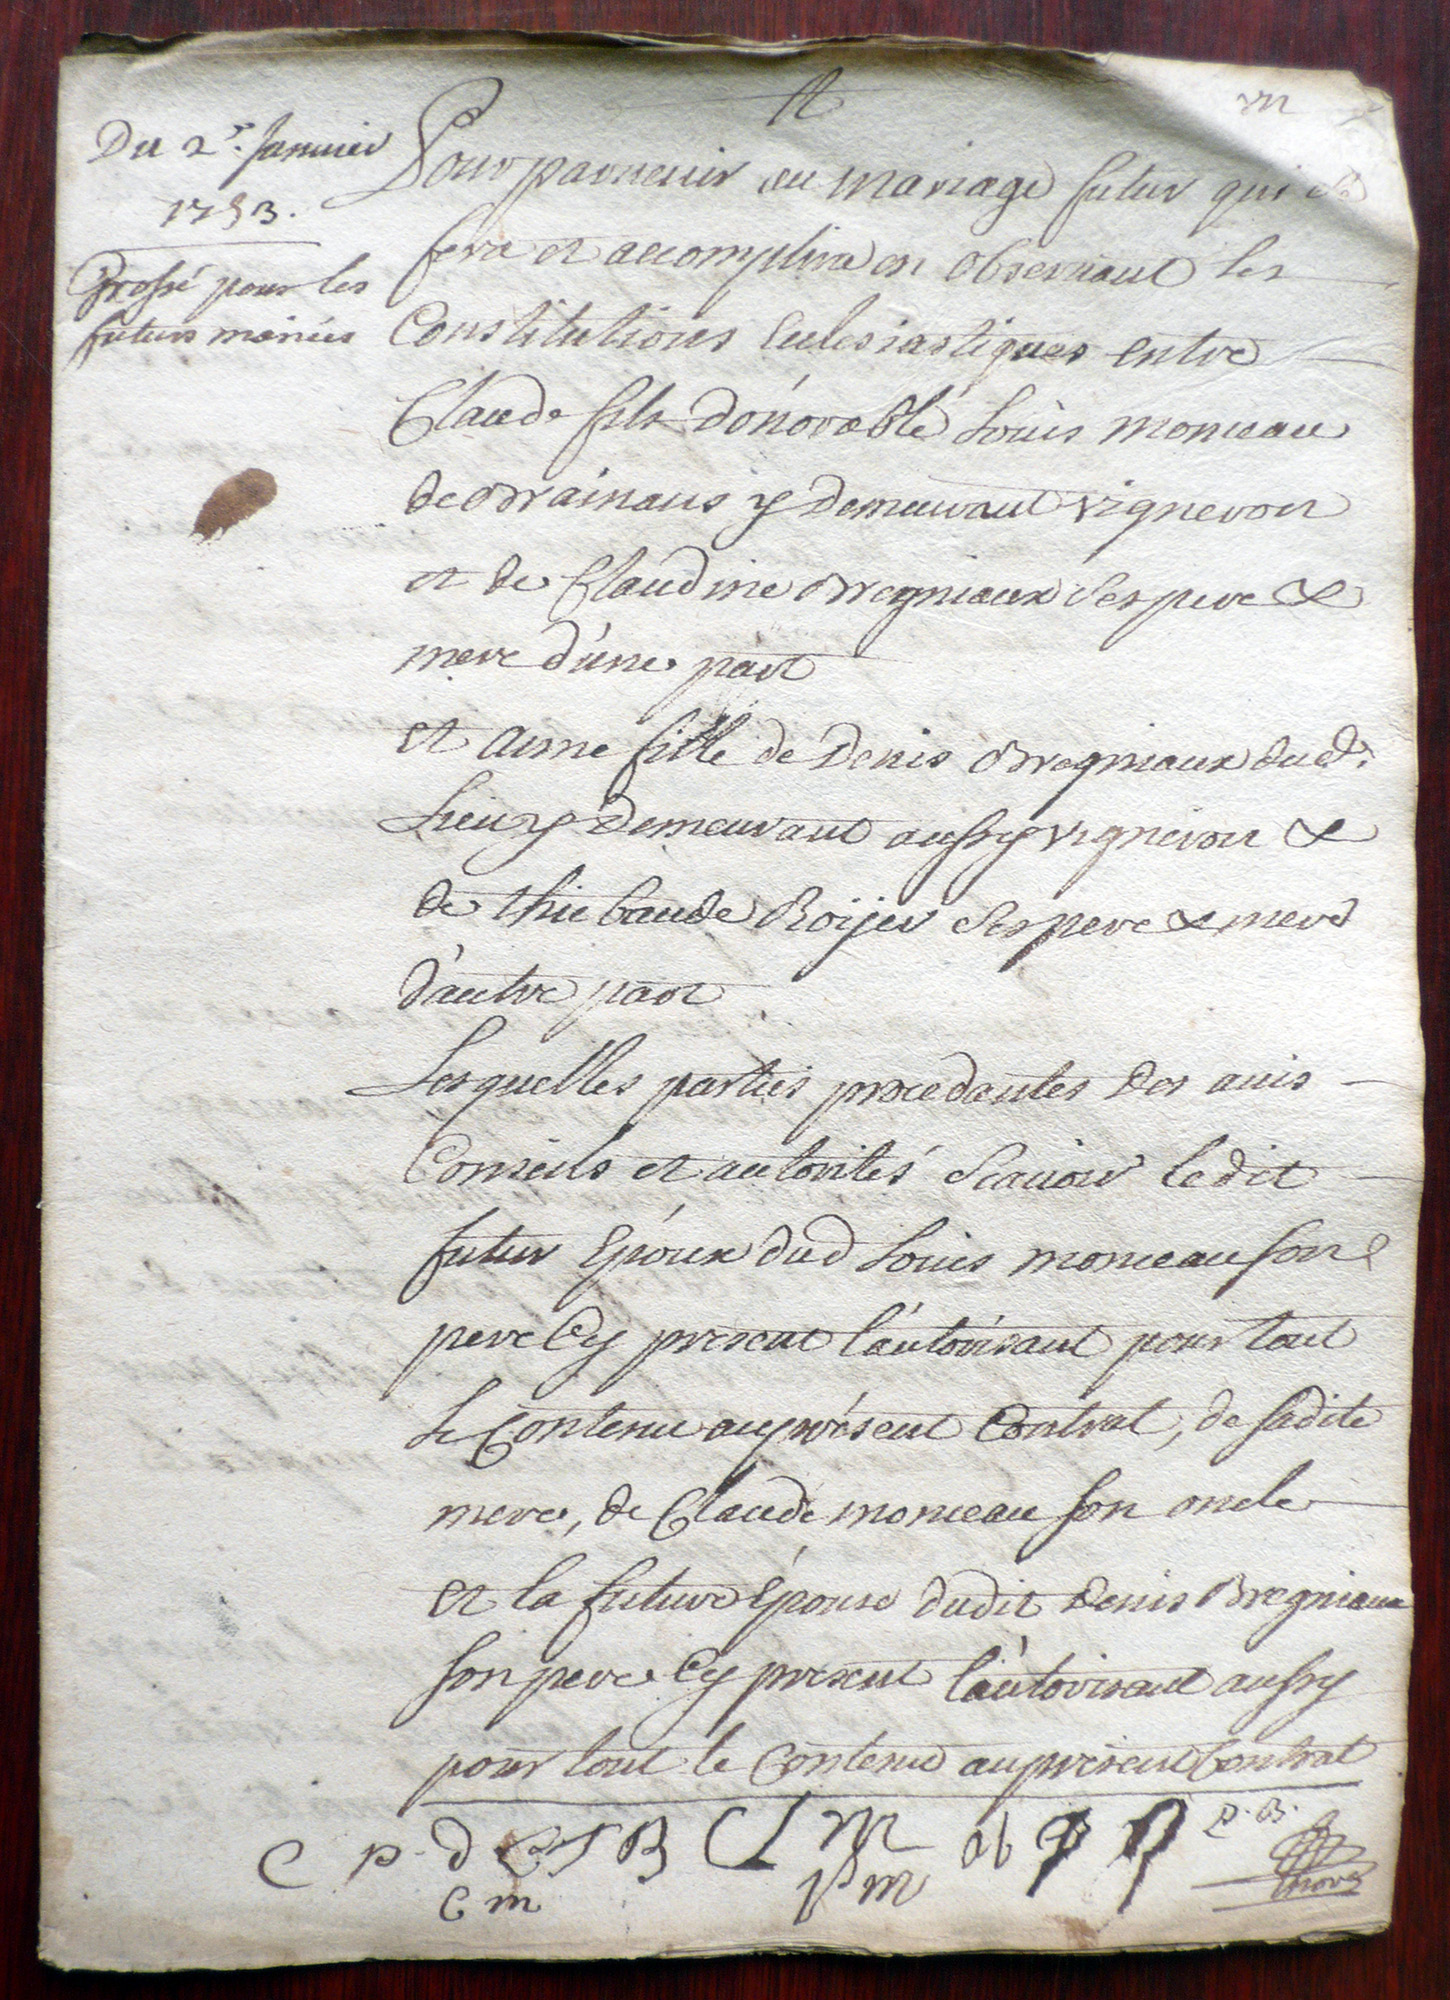 Du 2e. Janvier
1753.
Grossé pour les
futurs mariés
Pour parvenir au mariage futur qui se
fera et accomplira en observant les
Constitutions Eclesiastiques entre
Claude fils d'onorable Louis monneau
de Brainans y demeurant vigneron
et de Claudine Bregniaux Ses pere &
mere d'une part
et anne fille de Denis Bregniaux dud.
Lieu y Demeurant aussy vigneron &
de thiebaude Roijer Ses pere & mere
d'autre part
Lesquelles parties procedantes des avis
Conseils et autorités Scavoir le dit
futur Epoux dud Louis monneau son
pere Cy present l'autorisant pour tout
le Contenu au présent Contrat, de sadite
mere, de Claude monneau son oncle
et la future Épouse dudit Denis Bregniaux
son pere Cy present l'autorisant aussy
pour tout le Contenu au present Contrat
C p. d B C L M ab P. B.
C m m